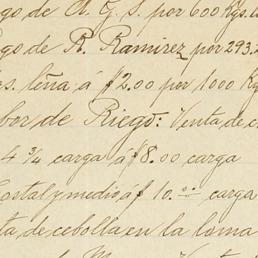 go de A. G. S. por 600 Kgs. l
go de R. Ramirez por 293.2
es. leña, á $2.00 por 1000 Kg
bor de Riego: Venta de c
4 3/4 carga á $8.00 carga
Costal y medio á $10.00 carga
ta de cebolla en la loma